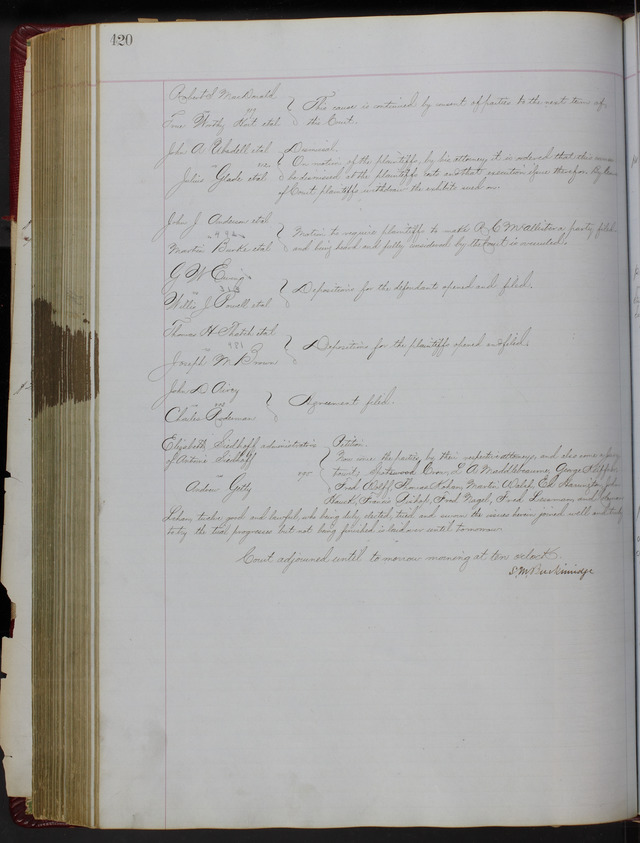 420
Robert S MacDonald
vs
This cause is continued by consent of parties to the next term of
the Court.
John A Usdell et al
vs
Julius et al
Dismissal.
On motion of the plaintiffs, by his attorney it is ordered that this cause
be dismissed at the plaintiffs cost and that execution issue therefor. By leave
of Court plaintiffs withdraw the exhibits sued on.
John J Anderson et al
vs 492
Martin Burke et al
Motion to require plaintiffs to make a party filed
and being heard and fully considered by the Court is overruled.
G W
vs
Willis J Powell et al
Depositions for the defendants opened and filed.
Thomas H et al
vs 981
Joseph W Brown
Depositions for the plaintiffs opened and filed.
John D
vs
Charles Rodeman
Agreement filed.
Elizabeth administratrix
of Antoine
vs
Andrew Getty
Petition.
Now come the parties, by their respective attorneys, and also come a jury
to wit, Spotswood George
Fred Wolff, Thomas Martin Walsh, Ed John
Francis Fred Nagel, Fred and
twelve good and lawful, who being duly elected, tried and sworn the issues herein joined well and truly
to try the trial progresses but not being finished is laid over until tomorrow.
Court adjourned until tomorrow morning at ten o'clock.
S. M. Breckinridge